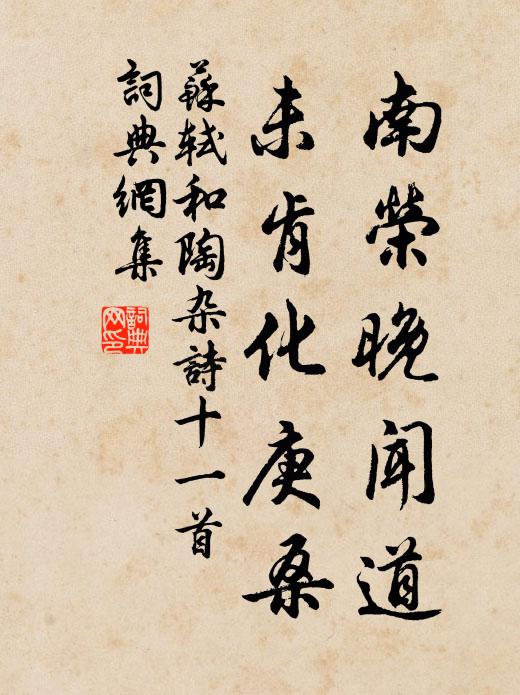 南榮晚聞道
未肯化庚桑
蘇軾和陶杂詩十一首
詞典網集
詞典网印